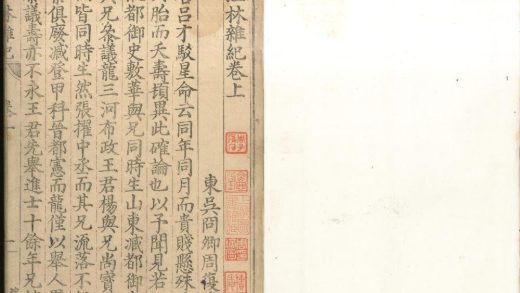 林雜紀卷上
東吳冏卿周復
呂才駁星命云同年同月而貴賤懸殊
胎而夭壽頓異此確論也以予聞見若
都御史敷華與兄同時生山東臧都御
兄叅議龍三河布政王君楊與兄尚寶
皆同時生然張擢中丞而其兄流落不
俱廢臧登甲科晉都憲而龍僅以舉人
叅議壽亦不永王君先舉進士十餘年兄
林雜紀 卷